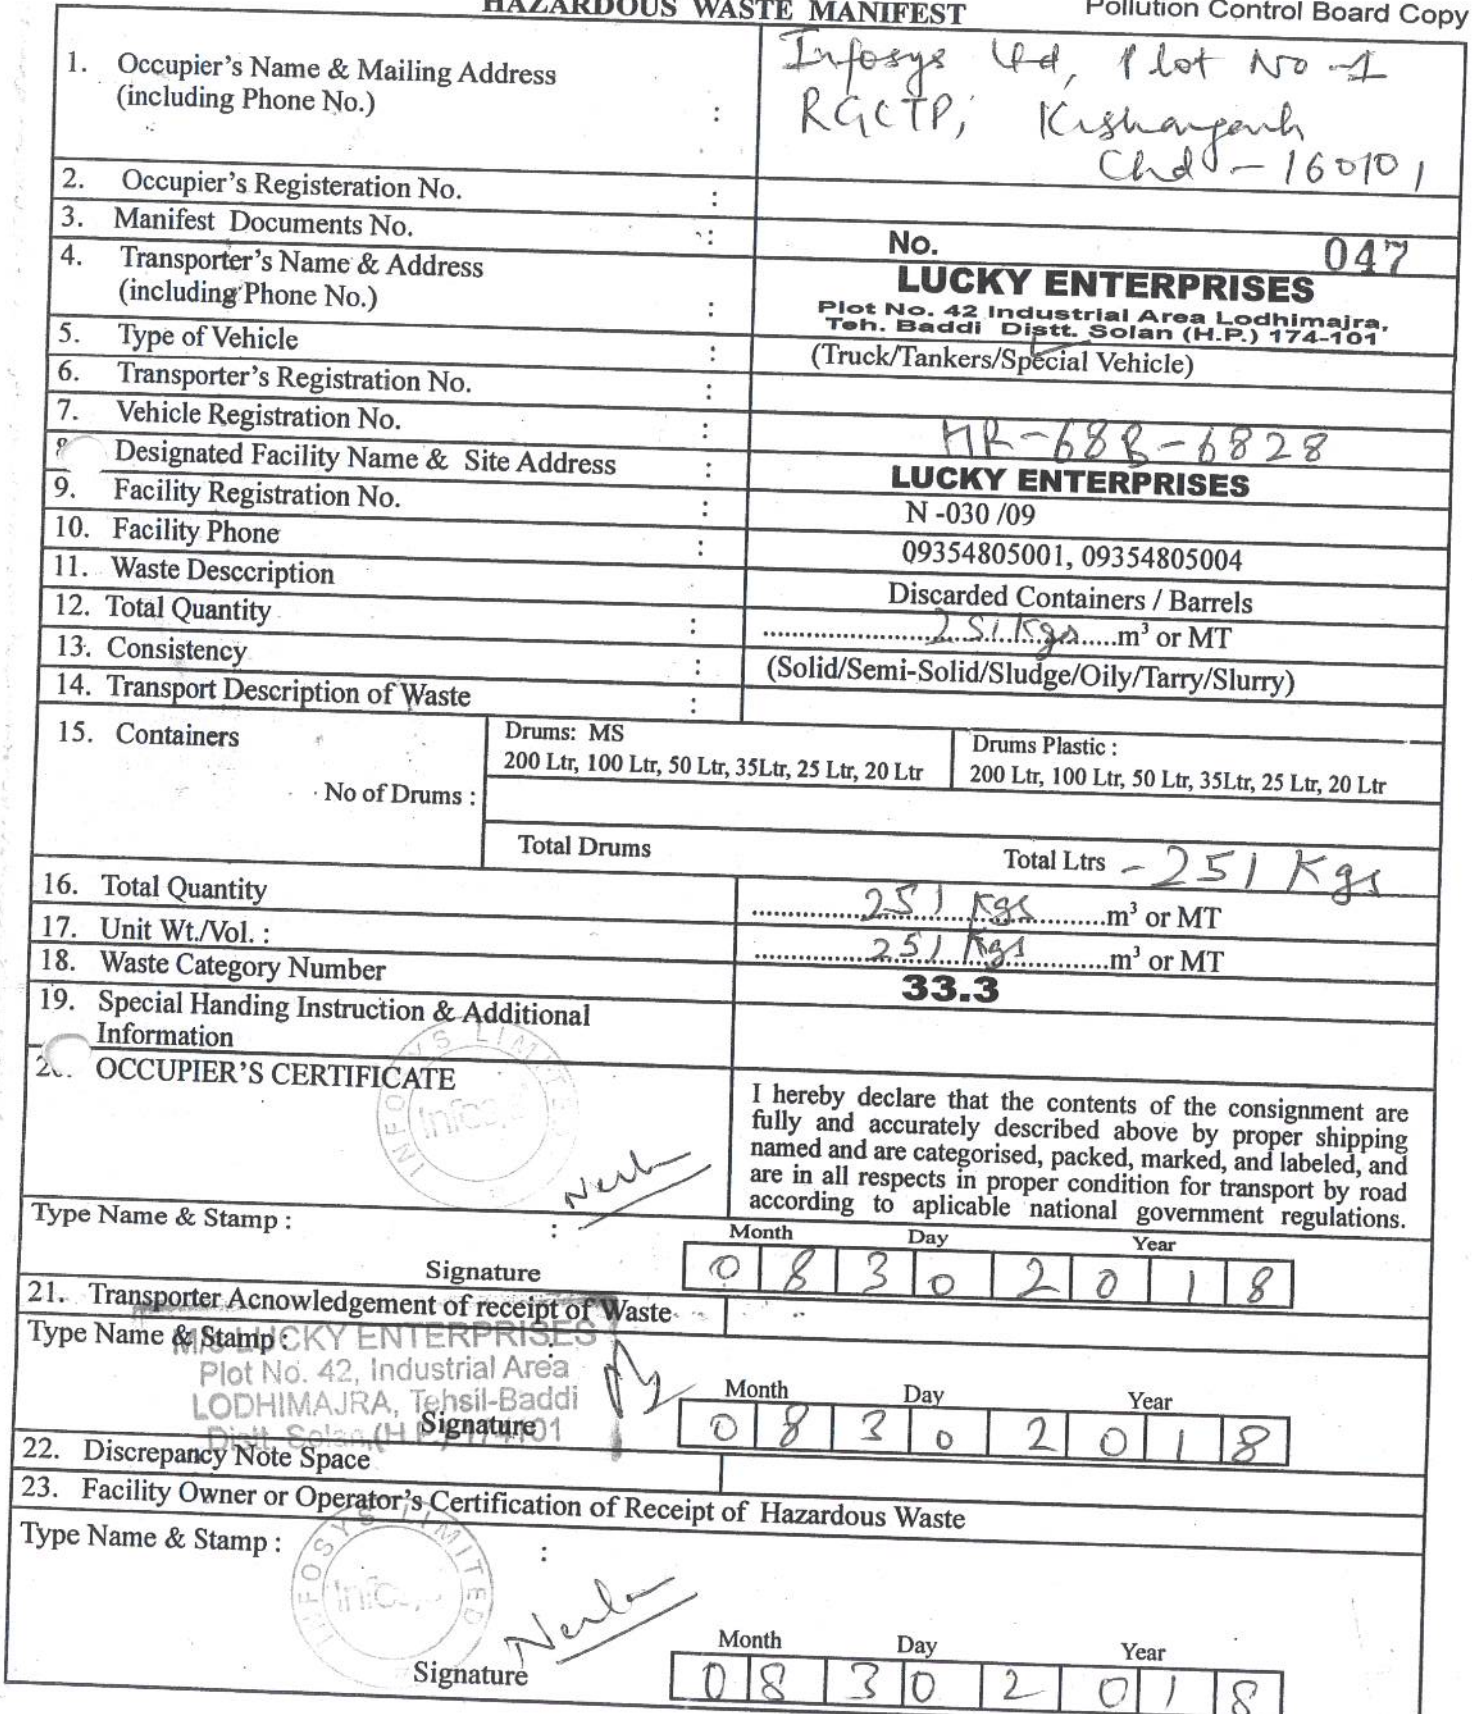 HAZARDOUS WASTE MANIFEST
Pollution Control Board Copy
1. Occupier's Name & Mailing Address
(including Phone No.) :
Infosys Ltd, Plot No-1
RGCTP, Kishangarh
Chd - 160101
2. Occupier's Registeration No. :
3. Manifest Documents No. :
No. 047
4. Transporter's Name & Address
(including Phone No.) :
LUCKY ENTERPRISES
Plot No. 42 Industrial Area Lodhimajra,
Teh. Baddi Distt. Solan (H.P.) 174-101
5. Type of Vehicle : (Truck/Tankers/Special Vehicle)
6. Transporter's Registration No. :
7. Vehicle Registration No. : HR-68B-6828
8 Designated Facility Name & Site Address : LUCKY ENTERPRISES
9. Facility Registration No. : N -030 /09
10. Facility Phone : 09354805001, 09354805004
11. Waste Desccription Discarded Containers / Barrels
12. Total Quantity : 251 Kgs m³ or MT
13. Consistency : (Solid/Semi-Solid/Sludge/Oily/Tarry/Slurry)
14. Transport Description of Waste :
15. Containers
Drums: MS
200 Ltr, 100 Ltr, 50 Ltr, 35Ltr, 25 Ltr, 20 Ltr
Drums Plastic :
200 Ltr, 100 Ltr, 50 Ltr, 35Ltr, 25 Ltr, 20 Ltr
No of Drums :
Total Drums
Total Ltrs - 251 Kgs
16. Total Quantity 251 Kgs m³ or MT
17. Unit Wt./Vol. : 251 Kgs m³ or MT
18. Waste Category Number 33.3
19. Special Handing Instruction & Additional
Information
INFOSYS LIMITED
Infosys
2 . OCCUPIER'S CERTIFICATE
I hereby declare that the contents of the consignment are
fully and accurately described above by proper shipping
named and are categorised, packed, marked, and labeled, and
are in all respects in proper condition for transport by road
according to aplicable national government regulations.
Type Name & Stamp : :
Month Day Year
Signature 0 8 3 0 2 0 1 8
21. Transporter Acnowledgement of receipt of Waste
Type Name & Stamp :
M/S LUCKY ENTERPRISES
Plot No. 42, Industrial Area
LODHIMAJRA, Tehsil-Baddi
Distt. Solan,(H.P.) 174101
Month Day Year
Signature 0 8 3 0 2 0 1 8
22. Discrepancy Note Space
23. Facility Owner or Operator's Certification of Receipt of Hazardous Waste
Type Name & Stamp : :
INFOSYS LIMITED
Infosys
Month Day Year
Signature 0 8 3 0 2 0 1 8